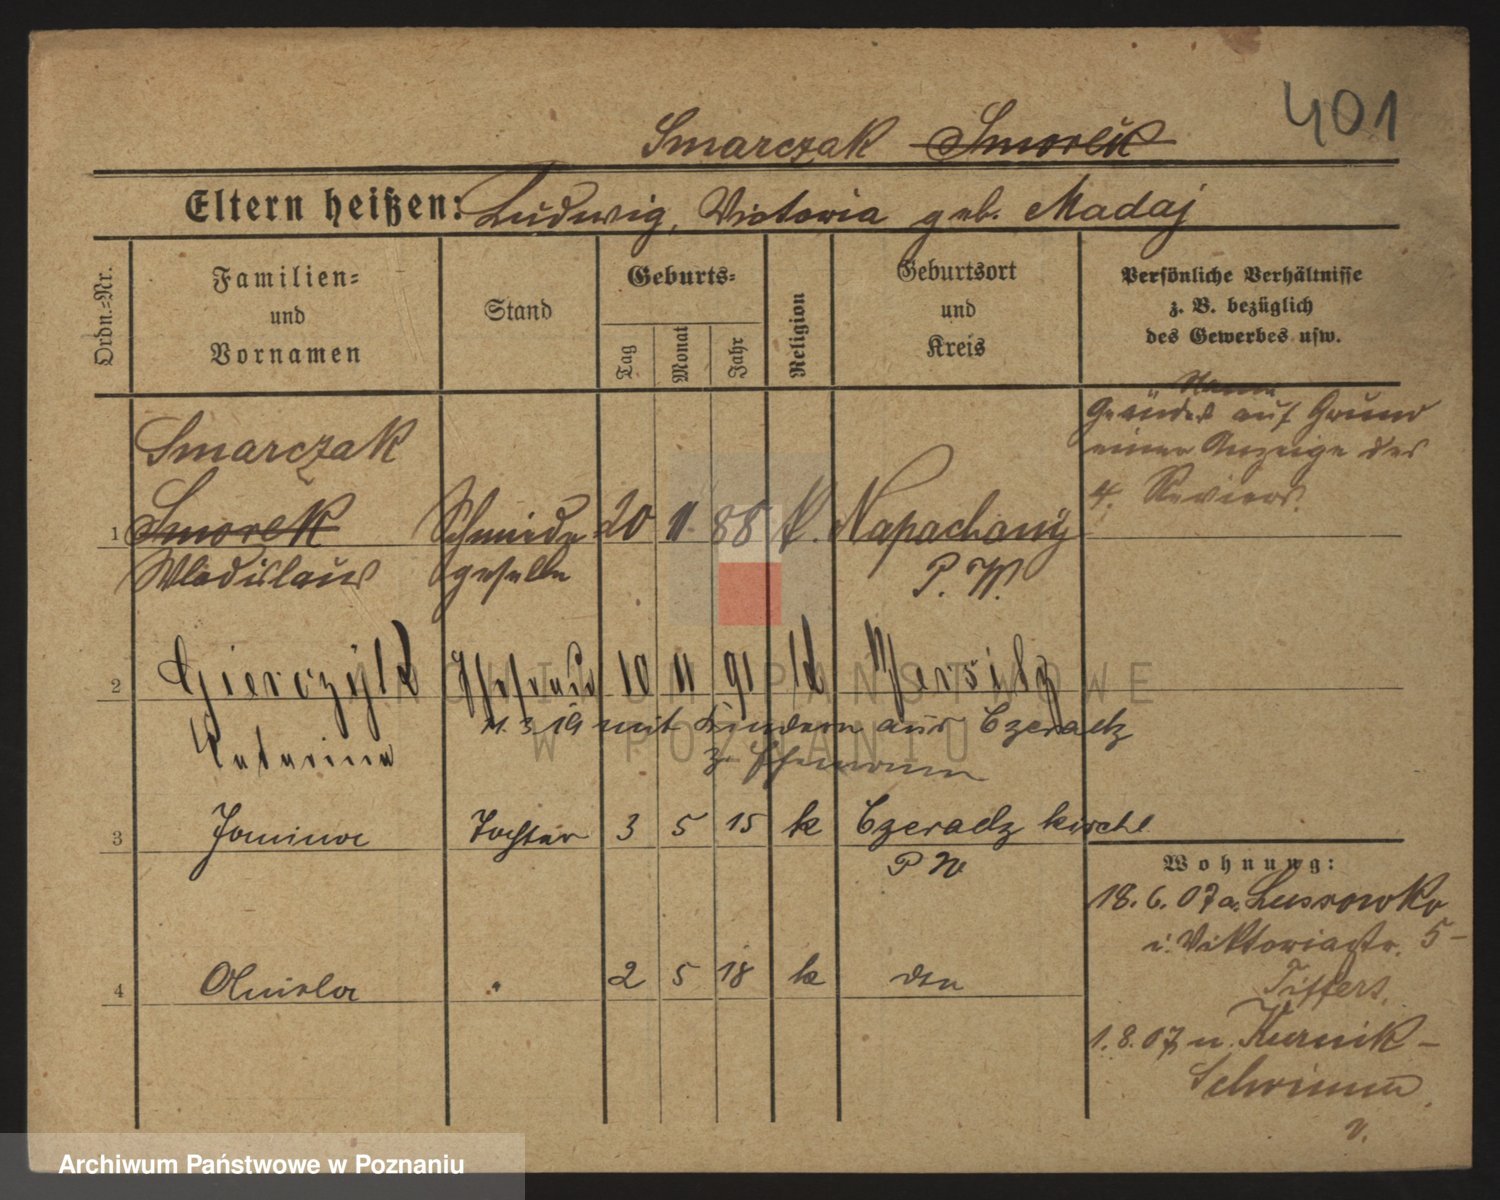 401
Smarczak Smorek
Eltern heißen: Ludwig, Victoria geb. Madaj
Ordn.-Nr.
Familien-
und
Vornamen
Stand
Geburts-
Tag
Monat
Jahr
Religion
Geburtsort
und
Kreis
Persönliche Verhältnisse
z. B. bezüglich
des Gewerbes usw.
Name
Geändert auf Grund
einer Anzeige des
4. Reviers.
Smarczak
1 Smorek Schmiede 20 11. 88 k. Napachanÿ
Wladislaus geselle P. W.
2 Ehefrau 10 11 91 k Wersitz
11. 3. 19 mit Kindern aus Czeradz
Katarina z. Ehemann
3 Janina Tochter 3 5 15 k Czeradz kirchl
P W
4 " 2 5 18 k den
Wohnung:
18. 6. 07 a. Lussowko
i. Viktoriastr. 5-
1. 8. 07 n. Kurnik-
v.
ARCHIWUM PAŃSTWOWE
W POZNANIU
Archiwum Państwowe w Poznaniu